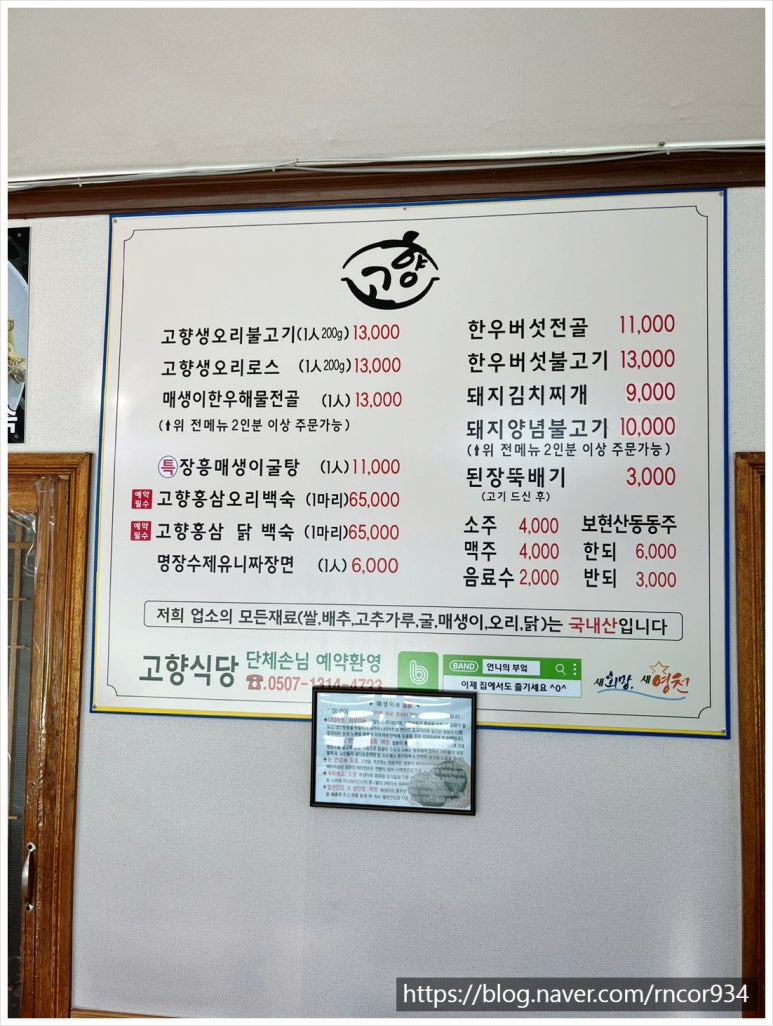 고향
고향생오리불고기(1人200g) 13,000
고향생오리로스 (1人200g) 13,000
매생이한우해물전골 (1人) 13,000
(⬆위 전메뉴 2인분 이상 주문가능)
특 장흥매생이굴탕 (1人) 11,000
예약필수 고향홍삼오리백숙 (1마리) 65,000
예약필수 고향홍삼 닭 백숙 (1마리) 65,000
명장수제유니짜장면 (1人) 6,000
한우버섯전골 11,000
한우버섯불고기 13,000
돼지김치찌개 9,000
돼지양념불고기 10,000
(⬆위 전메뉴 2인분 이상 주문가능)
된장뚝배기 3,000
(고기 드신 후)
소주 4,000 보현산동동주
맥주 4,000 한되 6,000
음료수 2,000 반되 3,000
저희 업소의 모든재료(쌀,배추,고추가루,굴,매생이,오리,닭)는 국내산입니다
고향식당 단체손님 예약환영
☎.0507-1314-4723
BAND 언니의 부엌
이제 집에서도 즐기세요 ^0^
새희망, 새영천
https://blog.naver.com/rncor934